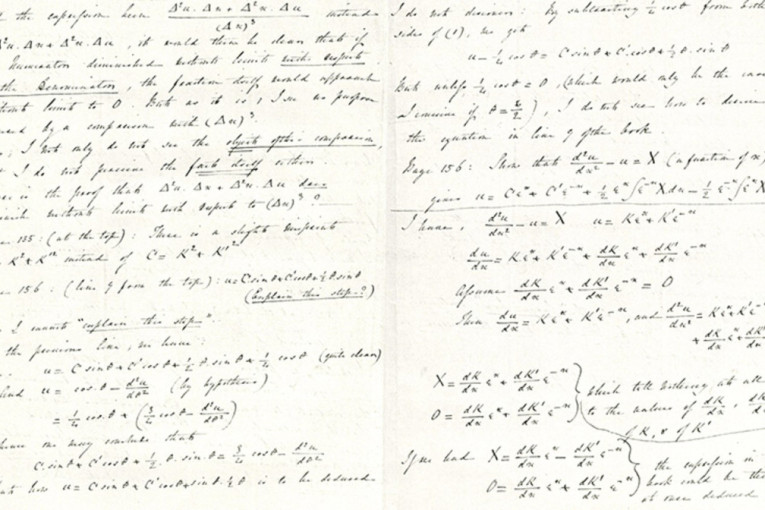 the expression been Δ²u. Δn + Δ²n. Δu / (Δn)³ instead
Δ²u. Δn + Δ²n. Δu, it would then be clear that if
Numerator diminished without limit with respect
the Denominator, the fraction itself would approach
without limit to 0. But as it is, I see no purpose
by a comparison with (Δn)³.
I not only do not see the object of the comparison,
I do not perceive the fact itself either.
is the proof that Δ²u. Δn + Δ²n. Δu does
without limit with respect to (Δn)³ ?
155: (at the top): There is a slight misprint
K² + K'² instead of C =
156: (line 9 from the top): u = C sin θ + C' cos θ + ½ θ sin θ
(Explain this step?)
I cannot "explain this step".
the previous line, we have:
u = C sin θ + C' cos θ + ½ θ. sin θ + ¼ cos θ (quite clear)
And u = cos θ − d²u/dθ² (by hypothesis)
= ¼ cos θ + (¾ cos θ − d²u/dθ²)
hence one may conclude that
C. sin θ + C' cos θ + ½ θ. sin θ = ¾ cos θ − d²u/dθ²
but how u = C sin θ + C' cos θ + sin θ. ½ θ is to be deduced
I do not discover: By subtracting ¼ cos θ from both
sides of (1), we get
u − ¼ cos θ = C sin θ + C' cos θ + ½ θ. sin θ
But unless ¼ cos θ = 0, (which would only be the case
I conceive if θ = π/2), I do not see how to deduce
the equation in line 9 of the book.
Page 156: Show that d²u/dx² − u = X (a function of x)
gives u = Cεˣ + C'ε⁻ˣ + ½ εˣ∫ε⁻ˣX dx − ½ ε⁻ˣ∫εˣX
I have, d²u/dx² − u = X u = Kεˣ + K'ε⁻ˣ
du/dx = Kεˣ + K'ε⁻ˣ + dK/dx εˣ + dK'/dx ε⁻ˣ
Assume dK/dx εˣ + dK'/dx ε⁻ˣ = 0
Then du/dx = Kεˣ + K'ε⁻ˣ, and d²u/dx² = Kεˣ + K'ε⁻ˣ
+ dK/dx εˣ + dK'/dx ε⁻ˣ
X = dK/dx εˣ + dK'/dx ε⁻ˣ } which tell nothing at all
0 = dK/dx εˣ + dK'/dx ε⁻ˣ } to the values of dK/dx, dK'
of K, & of K'
If we had X = dK/dx εˣ − dK'/dx ε⁻ˣ } the expression in
0 = dK/dx εˣ + dK'/dx ε⁻ˣ } book could be
at once deduced